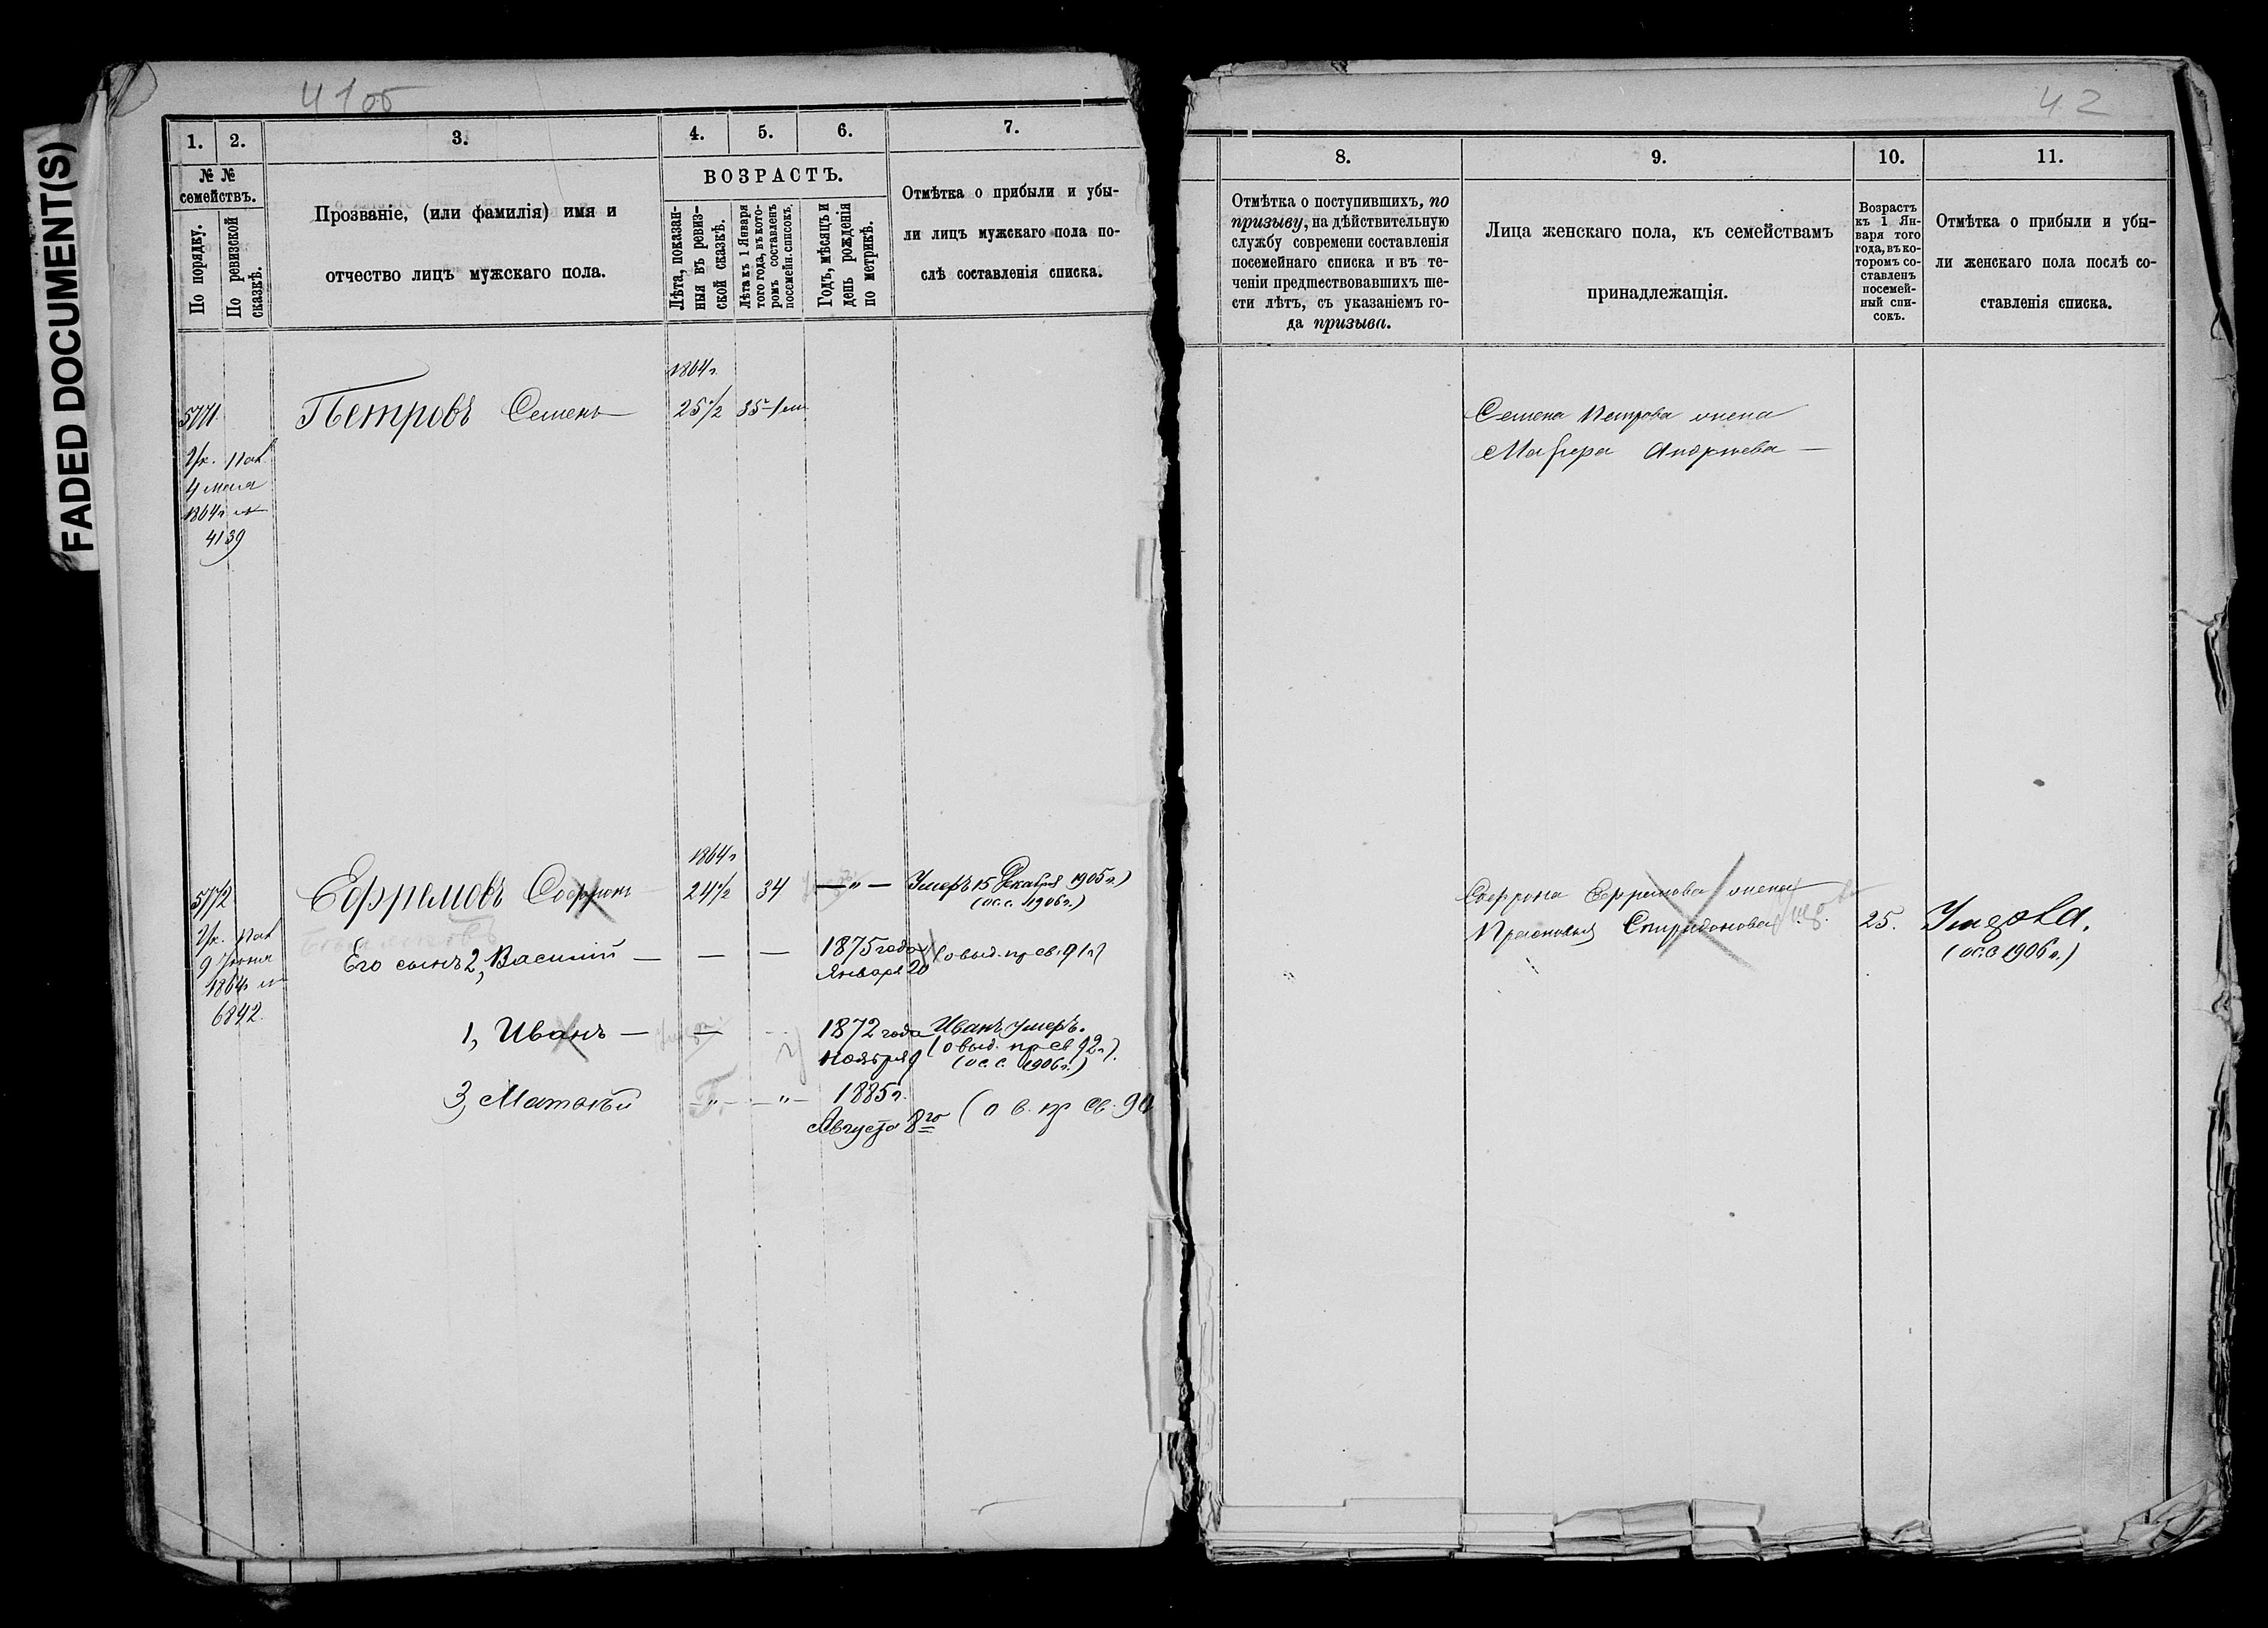 FADED DOCUMENT(S)
41об
1.
2.
3.
4.
5.
6.
7.
№ №
семействъ.
По порядку.
По ревизской
сказкѣ.
Прозваніе, (или фамилія) имя и
отчество лицъ мужскаго пола.
ВОЗРАСТЪ.
Лѣта, показан-
ныя въ ревиз-
ской сказкѣ.
Лѣта къ 1 Января
того года, въ кото-
ромъ составленъ
посемейн. списокъ.
Годъ, мѣсяцъ и
день рожденія
по метрикѣ.
Отмѣтка о прибыли и убы-
ли лицъ мужскаго пола по-
слѣ составленія списка.
1864г
5771
Петровъ Семенъ
25½
35
Ук. Пал
4 мая
1864г №
4139
1864г
5772
Ефремовъ Софронъ
24½
34
— „ —
Умеръ 15 Декабря 1905г.)
(ос.с. 1906г.)
Ук. Пал
9 Июня
1864г №
6842.
Его сынъ 2, Василий — — —
1875 года
Января 20
1, Иванъ — —
1872 года
Ноября 9
Иванъ умеръ.
(о выд. пр св 92г).
(ос.с. 1906г.)
3, Матвѣй
1885г.
Августа 8го
(о в. пр св. 90
42
8.
9.
10.
11.
Отмѣтка о поступившихъ, по
призыву, на дѣйствительную
службу современи составленія
посемейнаго списка и въ те-
ченіи предшествовавшихъ ше-
сти лѣтъ, съ указаніемъ го-
да призыва.
Лица женскаго пола, къ семействамъ
принадлежащія.
Возрастъ
къ 1 Ян-
варя того
года, въ ко-
торомъ со-
ставленъ
посемей-
ный спи-
сокъ.
Отмѣтка о прибыли и убы-
ли женскаго пола послѣ со-
ставленія списка.
Семена Петрова жена
Андреева —
Софрона Ефремова жена
Прасковья Спиридонова
25.
(ос.с 1906г.)